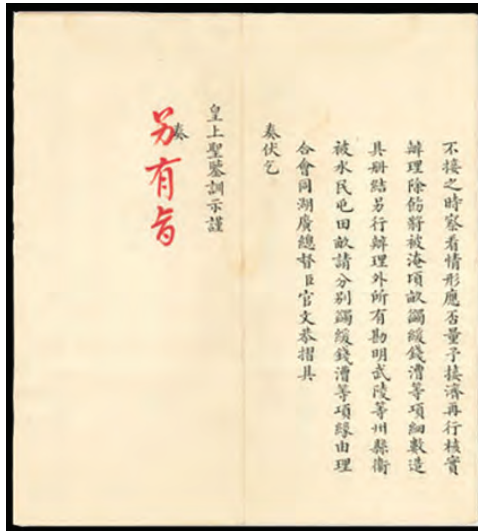 不接之時察看情形應否量予接濟再行核實
辦理除飭將被淹頃畝蠲緩錢漕等項細數造
具冊結另行辦理外所有勘明武陵等州縣衛
被水民屯田畝請分別蠲緩錢漕等項緣由理
合會同湖廣總督臣官文恭摺具
奏伏乞
皇上聖鑒訓示謹
奏
另有旨